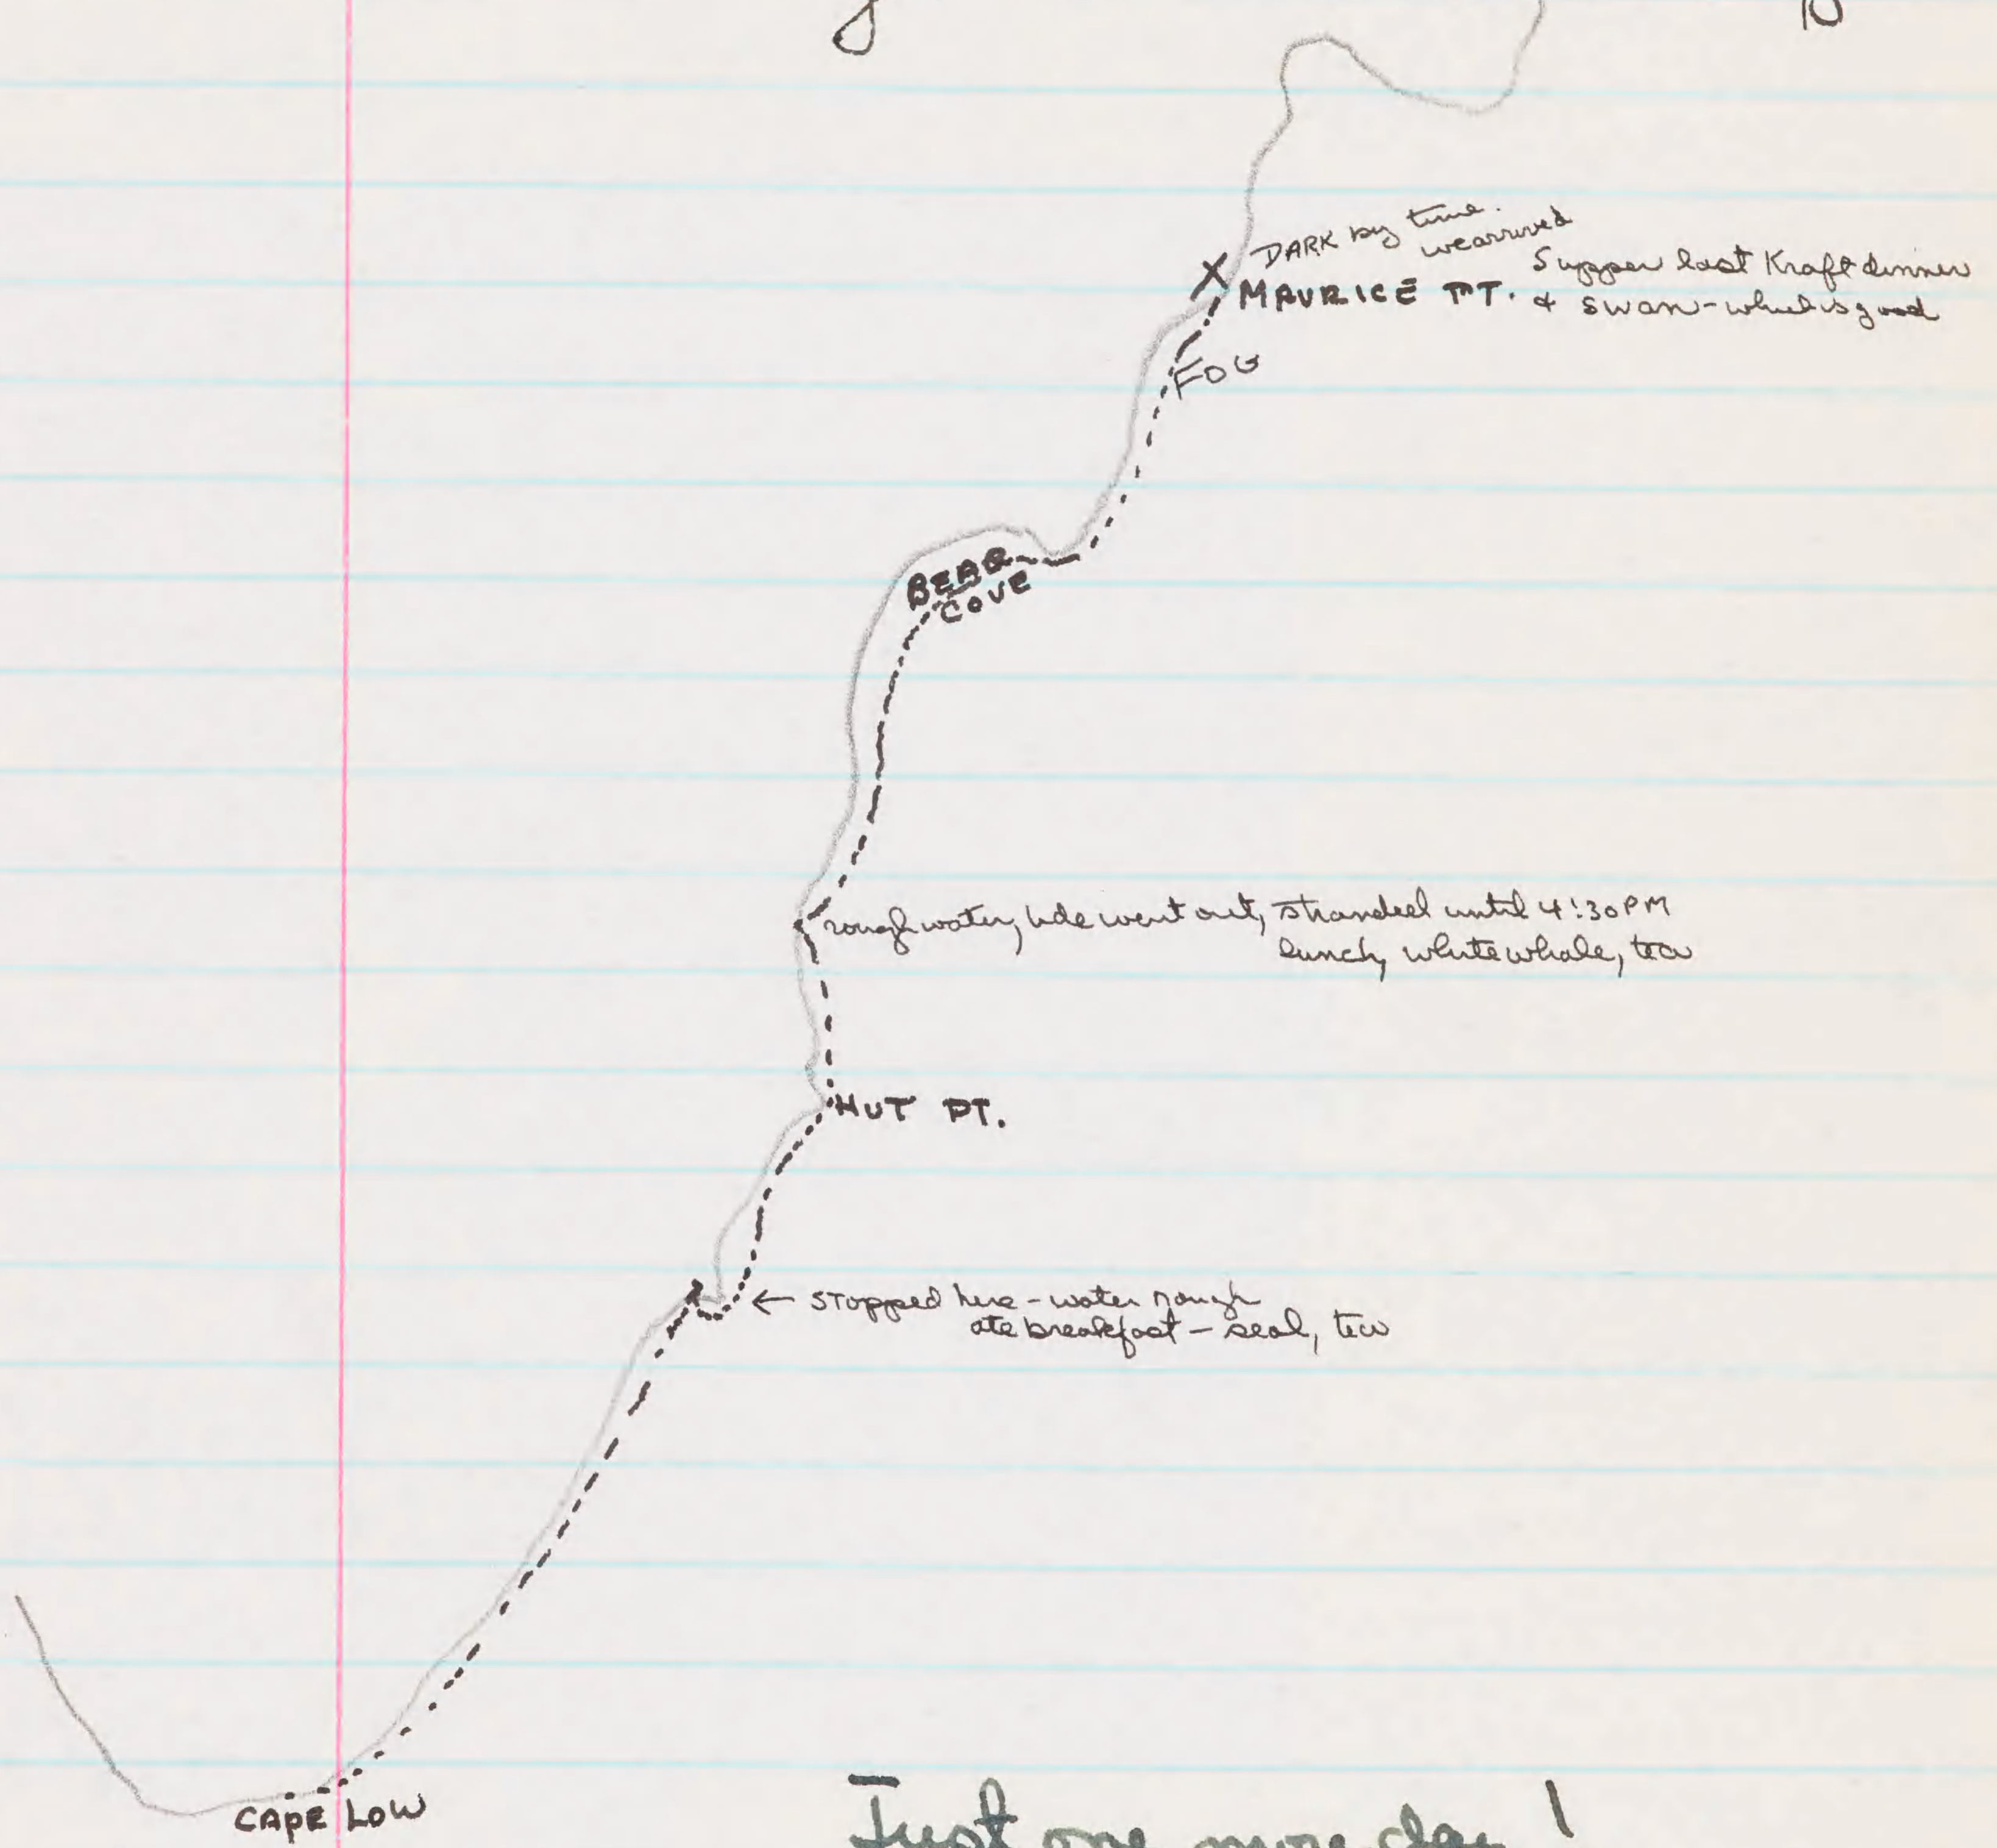 DARK by time
we arrived
MAURICE PT.
Supper last Kraft dinner
& swan - which is good
FOG
BEAR
COVE
rough water, tide went out, stranded until 4:30PM
lunch, white whale, tea
HUT PT.
← stopped here - water rough
ate breakfast - seal, tea
CAPE LOW
Just one more day!